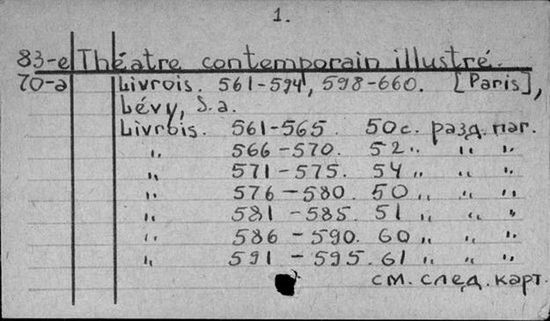 1.
83-е Théatre contemporain illustré.
70-а Livrois. 561-594, 598-660. [Paris],
Lévy, S.a.
Livrois. 561-565 50 с. разд. паг.
" 566-570. 52 " " "
" 571-575. 54 " " "
" 576-580. 50 " " "
" 581-585. 51 " " "
" 586-590. 60 " " "
" 591-595. 61 " " "
см. след. карт.